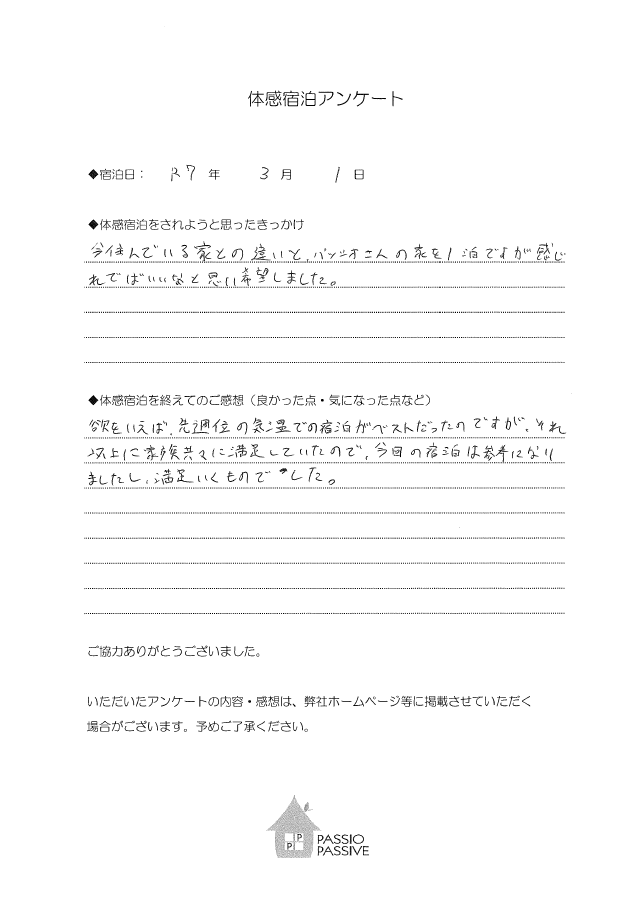 体感宿泊アンケート
◆宿泊日： R7 年 3 月 1 日
◆体感宿泊をされようと思ったきっかけ
今住んでいる家との違いと、パッシオさんの家を1泊ですが感じ
れでばいいなと思い希望しました。
◆体感宿泊を終えてのご感想（良かった点・気になった点など）
欲をいえば、先週位の気温での宿泊がベストだったのですが、それ
以上に家族共々に満足していたので、今回の宿泊は参考になり
ましたし、満足いくものでした。
ご協力ありがとうございました。
いただいたアンケートの内容・感想は、弊社ホームページ等に掲載させていただく
場合がございます。予めご了承ください。
P
P P
PASSIO
PASSIVE